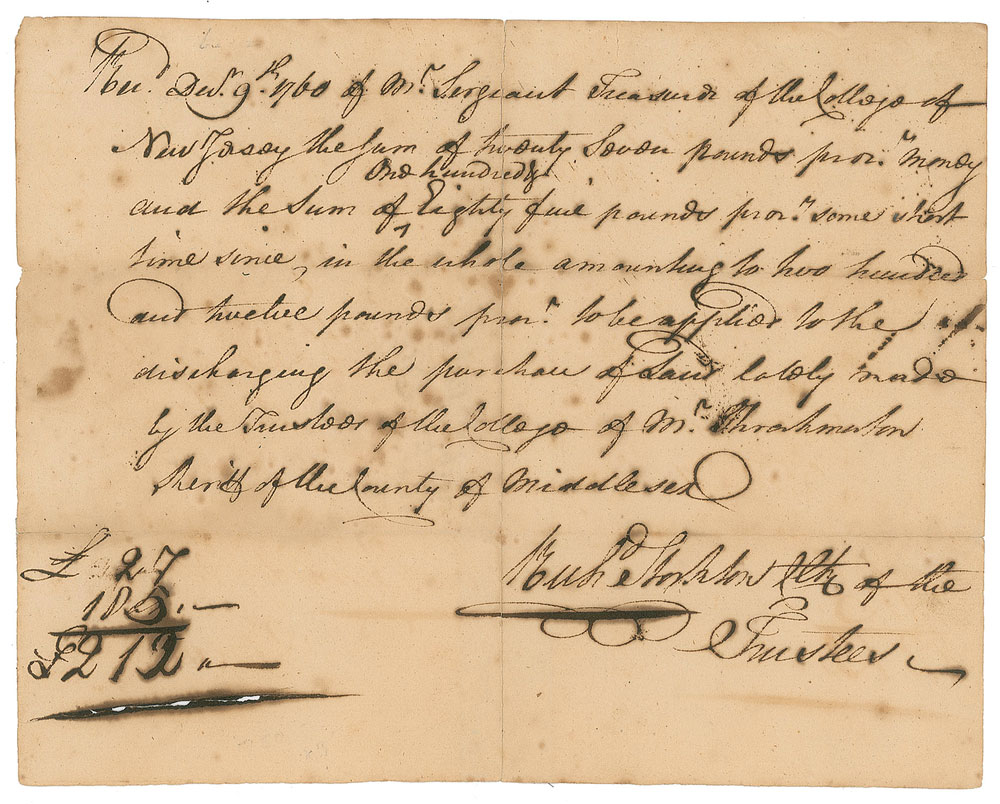 Recd. Decr. 9th. 1760 of Mr. Sergeant Treasurer of the College of
New Jersey the Sum of twenty Seven pounds procn. money
One hundred &
and the Sum of Eighty five pounds procn. some short
time since, in the whole amounting to two hundred
and twelve pounds procn. to be applied to the
discharging the purchase of Land lately made
by the Trustees of the College of Mr. Throckmorton
Sheriff of the County of Middlesex
£ 27
185. —
£212 " —
Richd Stockton Clk of the
Trustees.